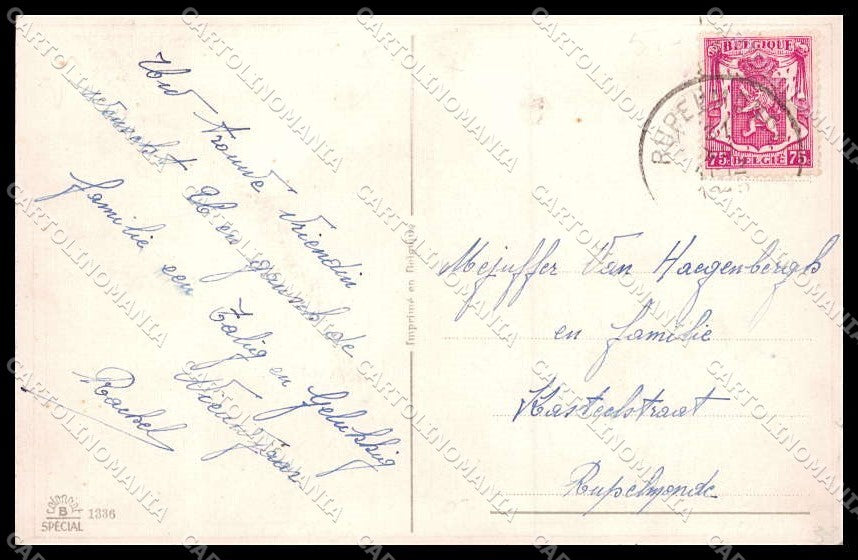 Uw trouwe Vriendin
wenscht U en gansch de
familie een Zalig en Gelukkig
Nieuwjaar
Rachel
B
SPÉCIAL
1336
Imprimé en Belgique
BELGIQUE
75 BELGIË 75
RUPEL
Mejuffer Van Haegenbergh
en familie
Kasteelstraat
Rupelmonde
CARTOLINOMANIA